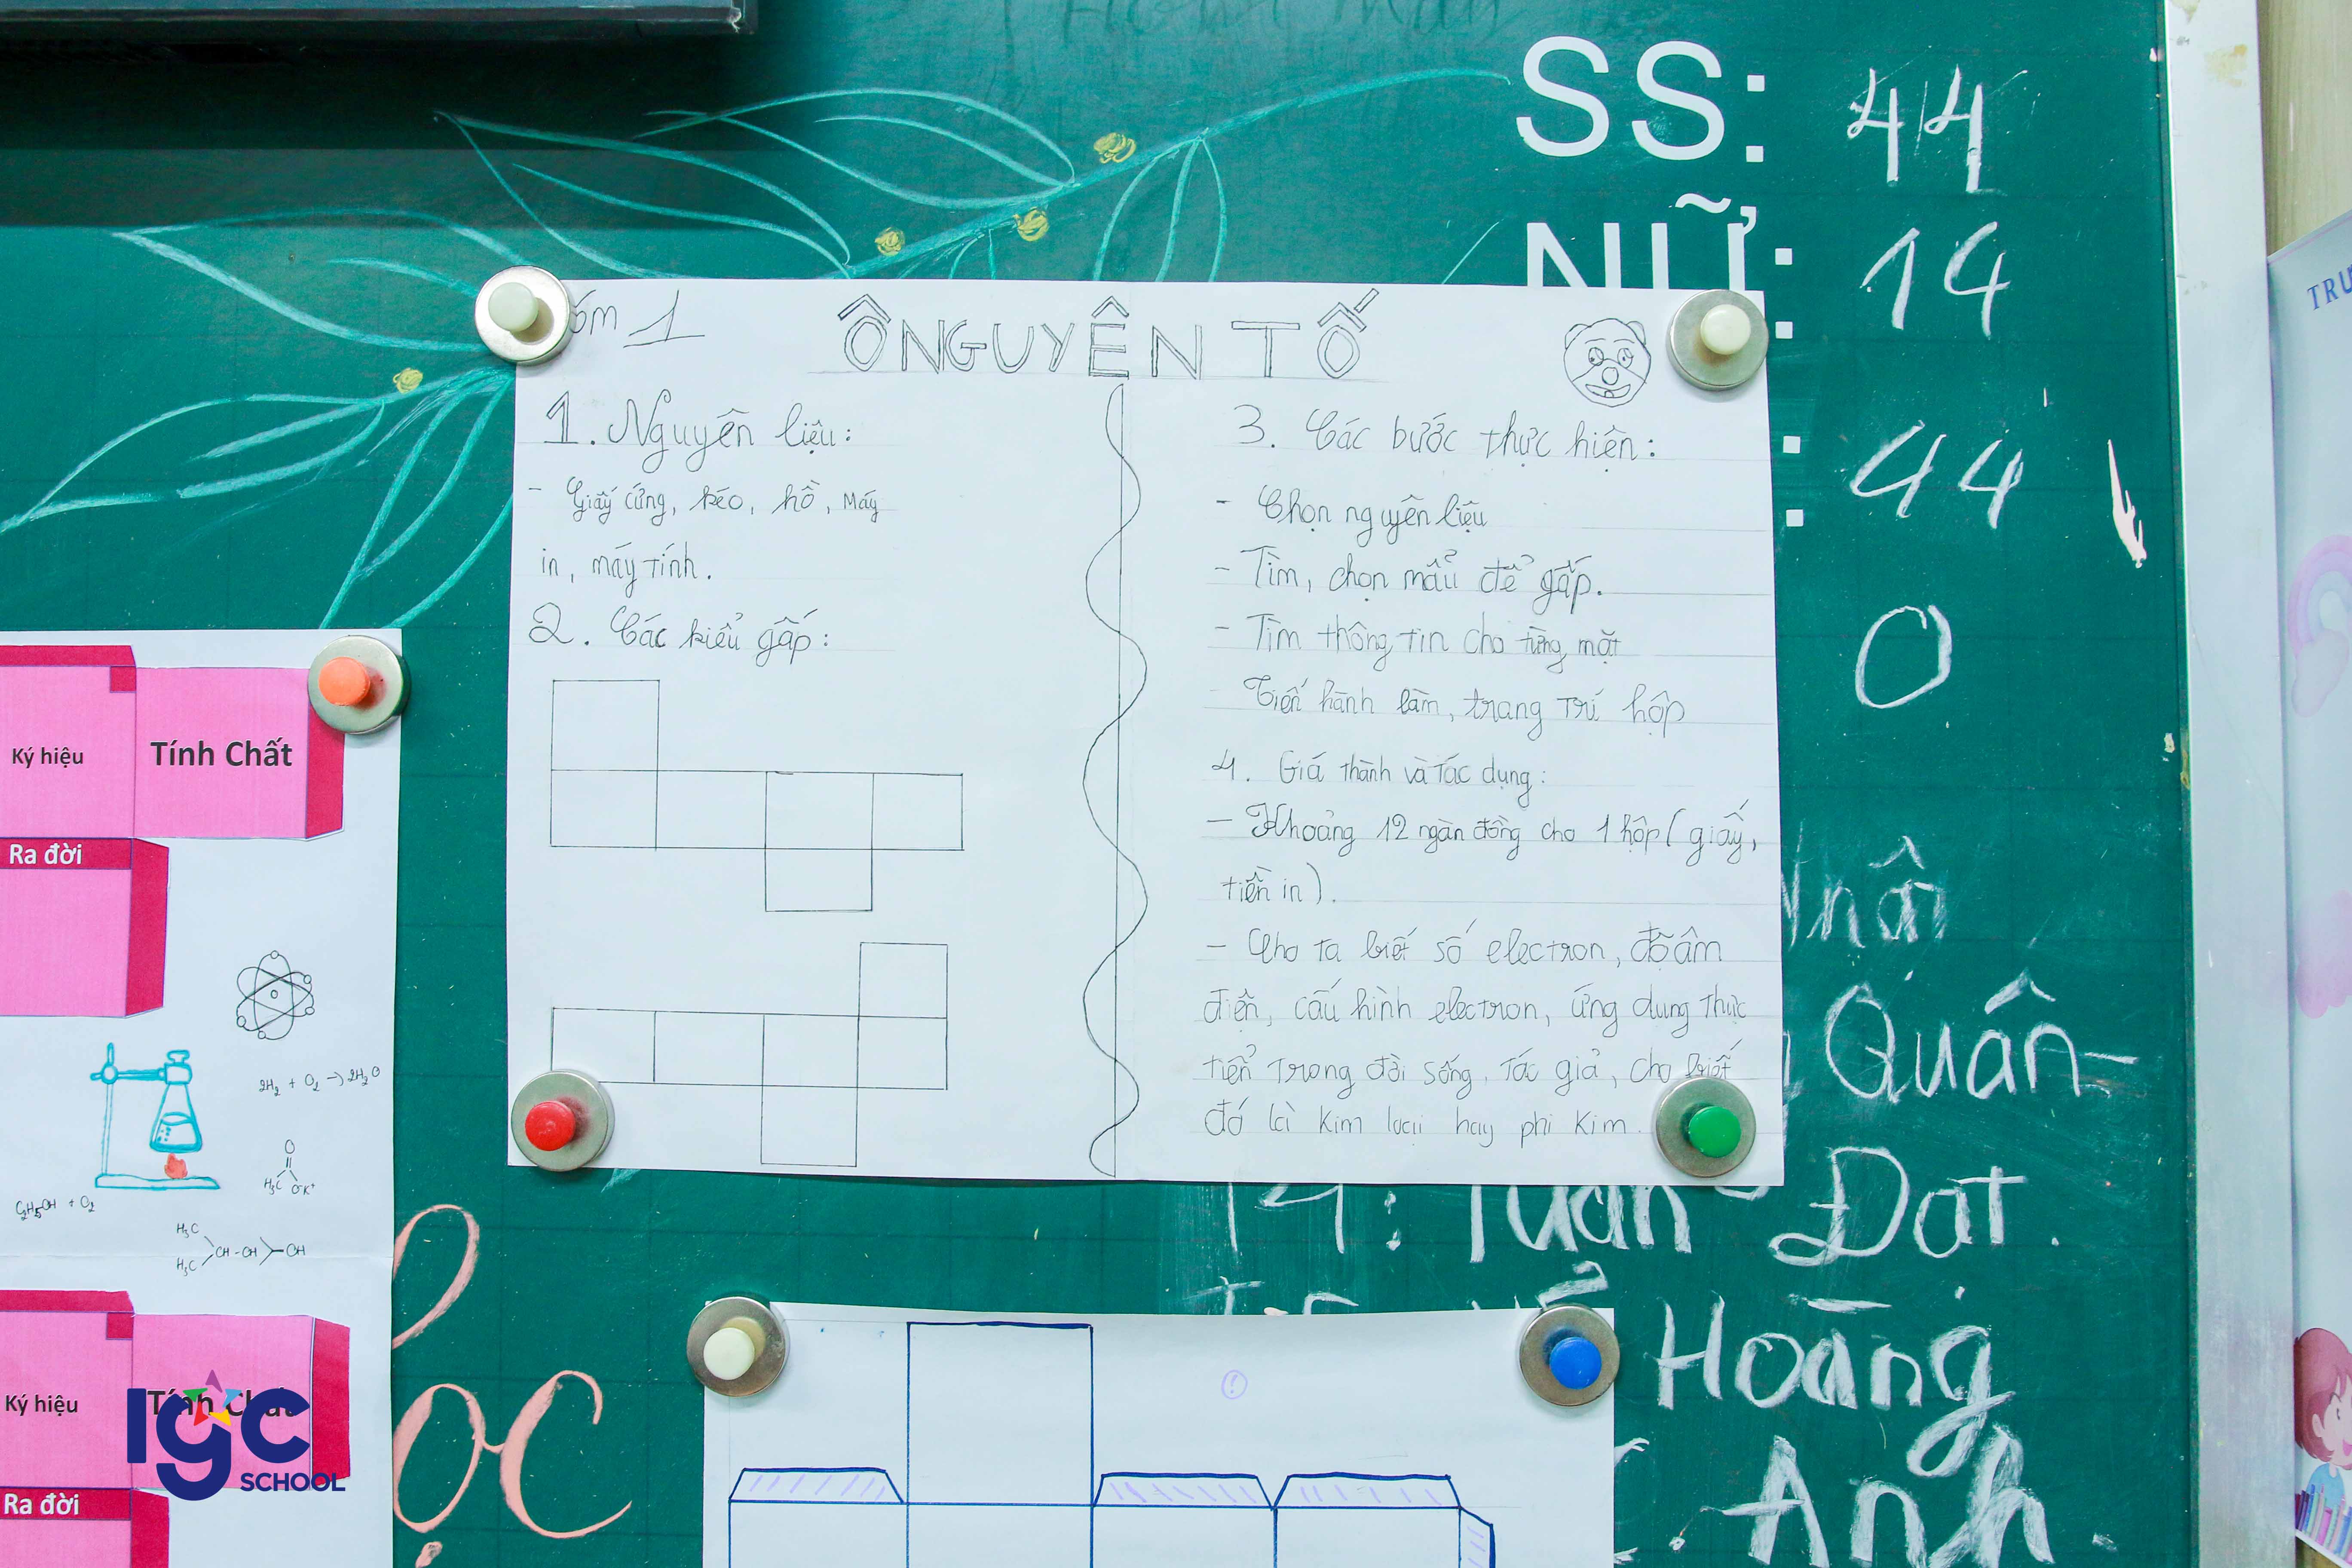 SS: 44
NỮ: 14
: 44
: 0
1
Ô NGUYÊN TỐ
1. Nguyên liệu:
- Giấy cứng, kéo, hồ, máy
in, máy tính.
2. Các kiểu gấp:
3. Các bước thực hiện:
- Chọn nguyên liệu
- Tìm, chọn mẫu để gấp.
- Tìm thông tin cho từng mặt
- Tiến hành làm, trang trí hộp
4. Giá thành và tác dụng:
- Khoảng 12 ngàn đồng cho 1 hộp (giấy,
tiền in).
- Cho ta biết số electron, độ âm
điện, cấu hình electron, ứng dụng thực
tiễn trong đời sống, tác giả, cho biết
đó là kim loại hay phi kim.
Ký hiệu
Tính Chất
Ra đời
2H₂ + O₂ → 2H₂O
O
H₃C O⁻K⁺
C₂H₅OH + O₂
H₃C
H₃C CH-CH OH
Ký hiệu
Ra đời
IGC
SCHOOL
Quân
14: Tuấn Đạt.
Hoàng
Anh.